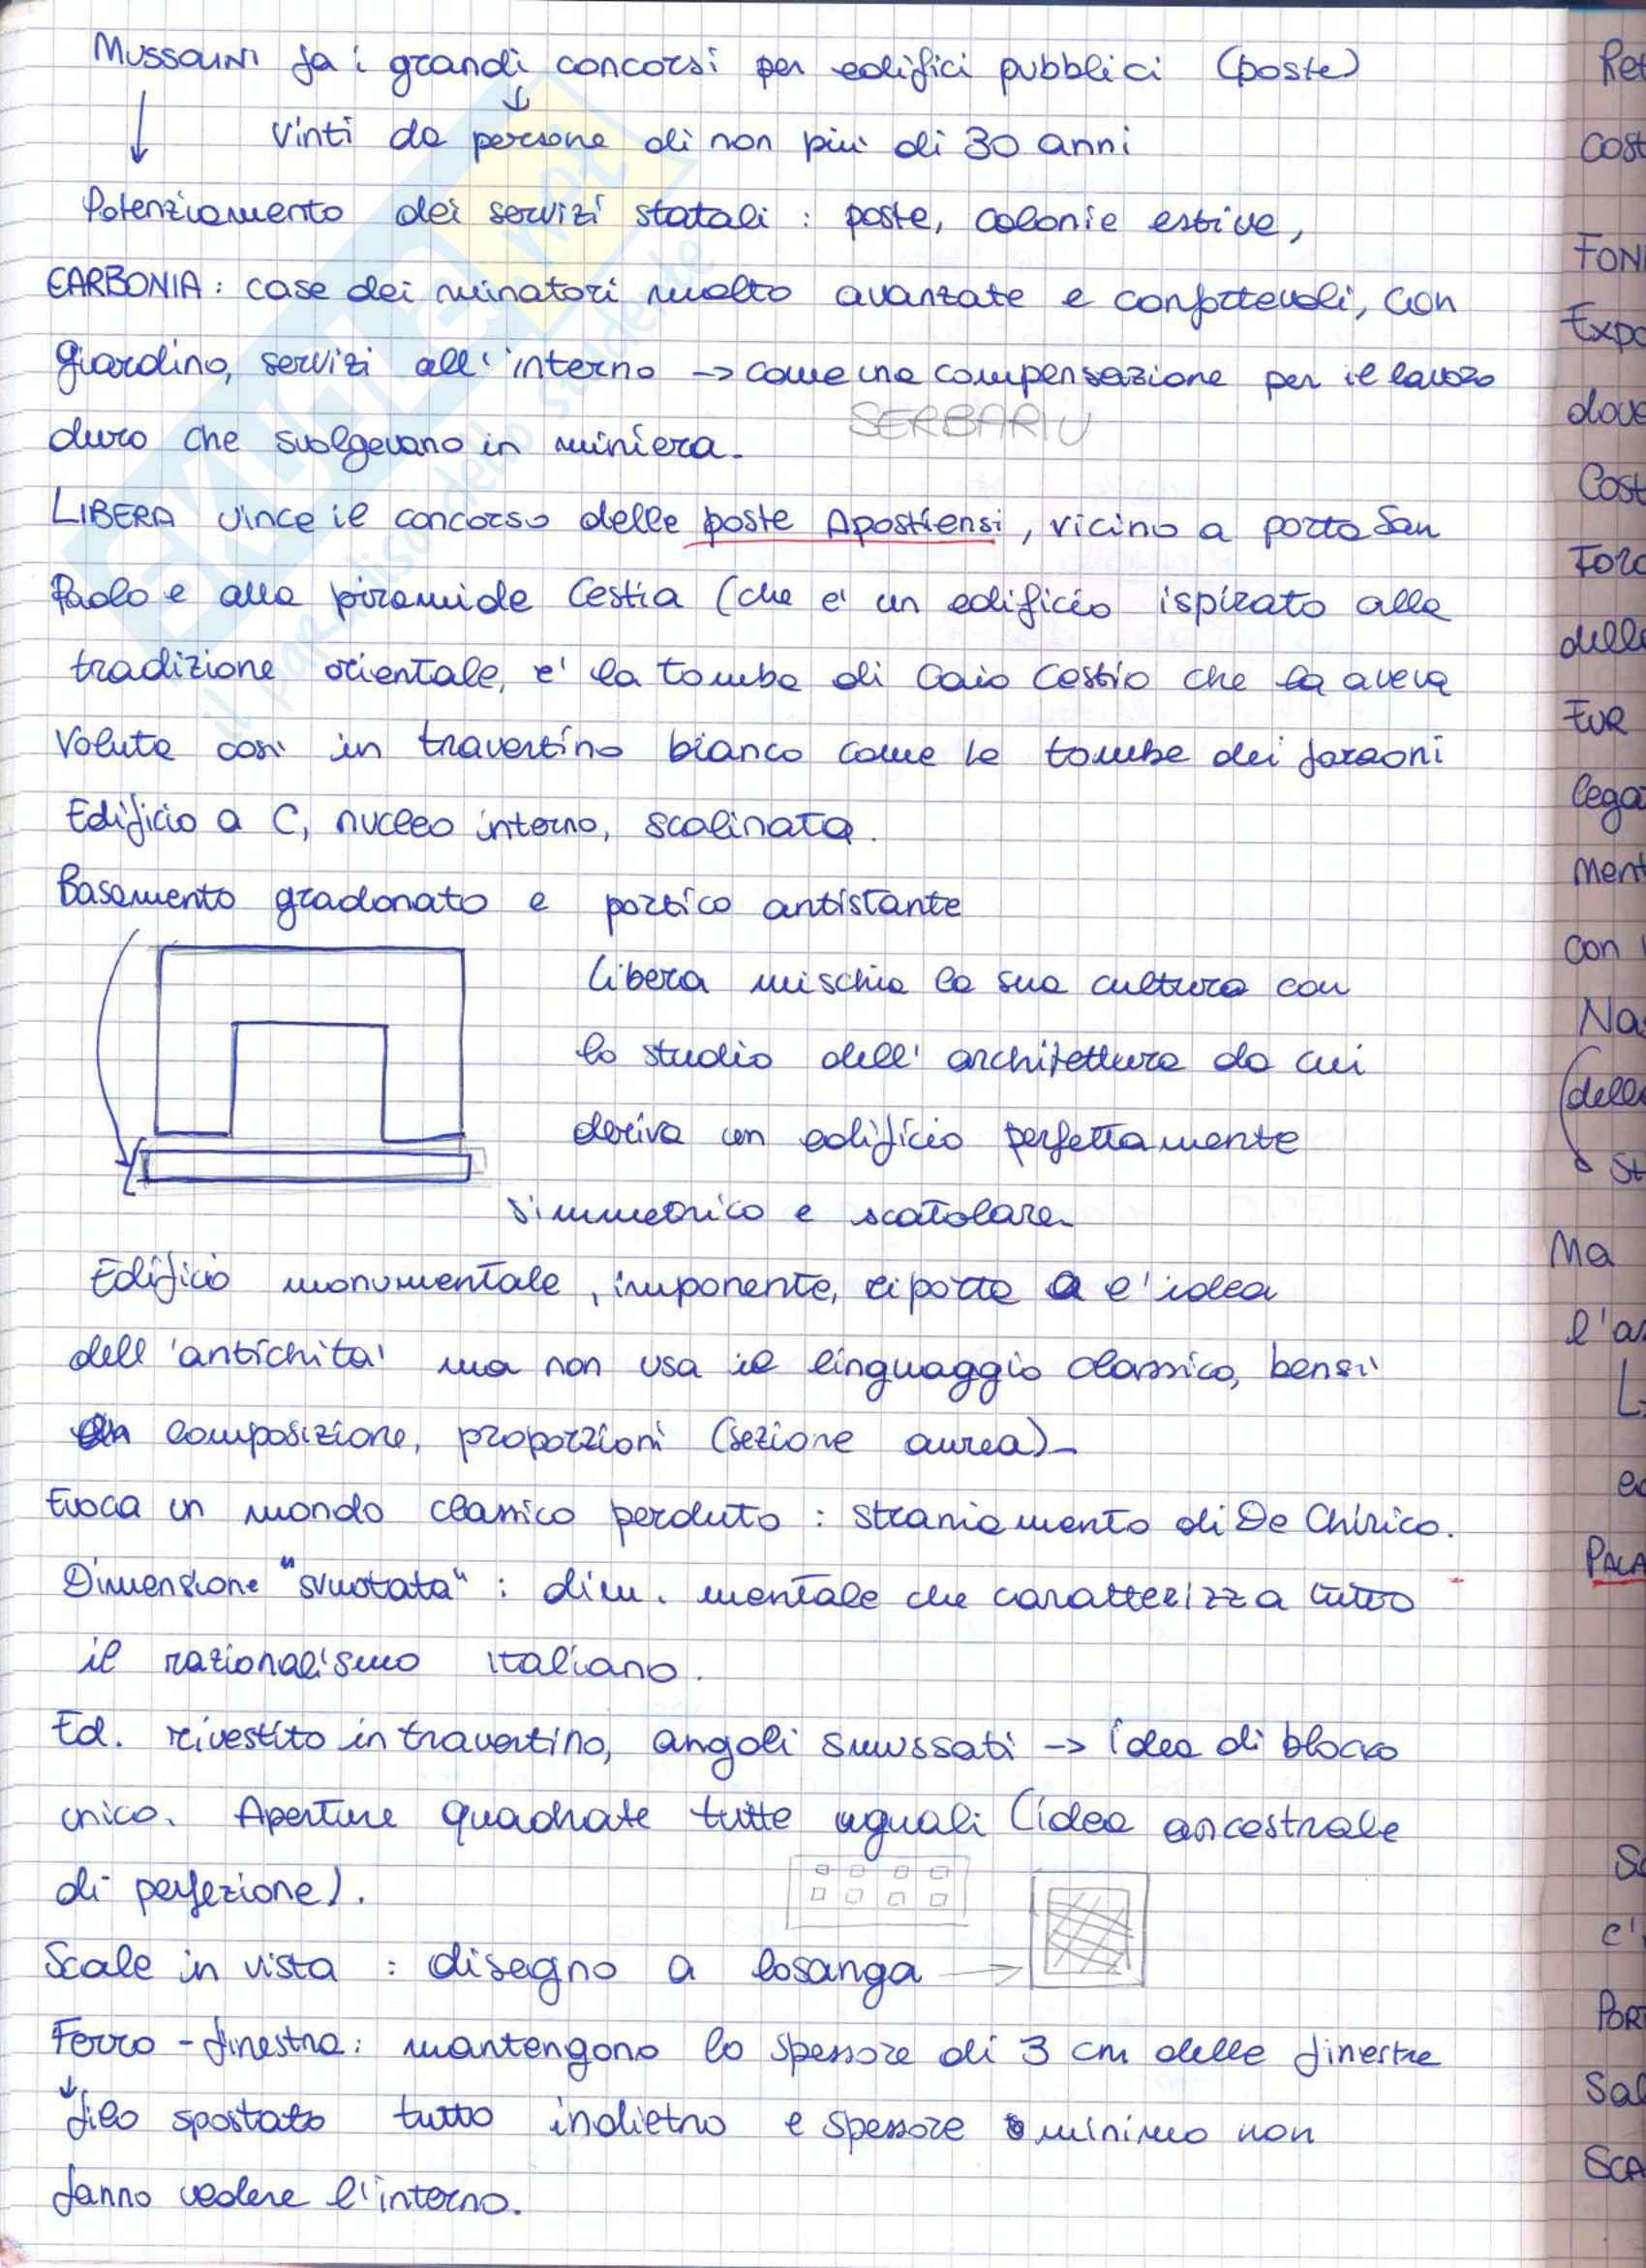 Mussolini fa i grandi concorsi per edifici pubblici (poste)
↓ vinti da persone di non più di 30 anni
Potenziamento dei servizi statali : poste, colonie estive,
CARBONIA : case dei minatori molto avanzate e confortevoli, con
giardino, servizi all'interno -> come una compensazione per il lavoro
SERBARIU
duro che svolgevano in miniera.
LIBERA vince il concorso delle poste Apostiensi, vicino a porta San
Paolo e alla piramide Cestia (che e' un edificio ispirato alla
tradizione orientale, e' la tomba di Caio Cestio che la aveva
voluta così in travertino bianco come le tombe dei faraoni
Edificio a C, nucleo interno, scalinata.
Basamento gradonato e portico antistante
Libera mischia la sua cultura con
lo studio dell'architettura da cui
deriva un edificio perfettamente
simmetrico e scatolare.
Edificio monumentale, imponente, riporta a l'idea
dell'antichita' ma non usa il linguaggio classico, bensì
composizione, proporzioni (sezione aurea).
Evoca un mondo classico perduto : straniamento di De Chirico.
Dimensione "svuotata" : dim. mentale che caratterizza tutto
il razionalismo italiano.
Ed. rivestito in travertino, angoli smussati -> idea di blocco
unico. Aperture quadrate tutte uguali (idea ancestrale
di perfezione).
Scale in vista : disegno a losanga →
Ferro - finestra : mantengono lo spessore di 3 cm delle finestre
↓ filo spostato tutto indietro e spessore minimo non
fanno vedere l'interno.